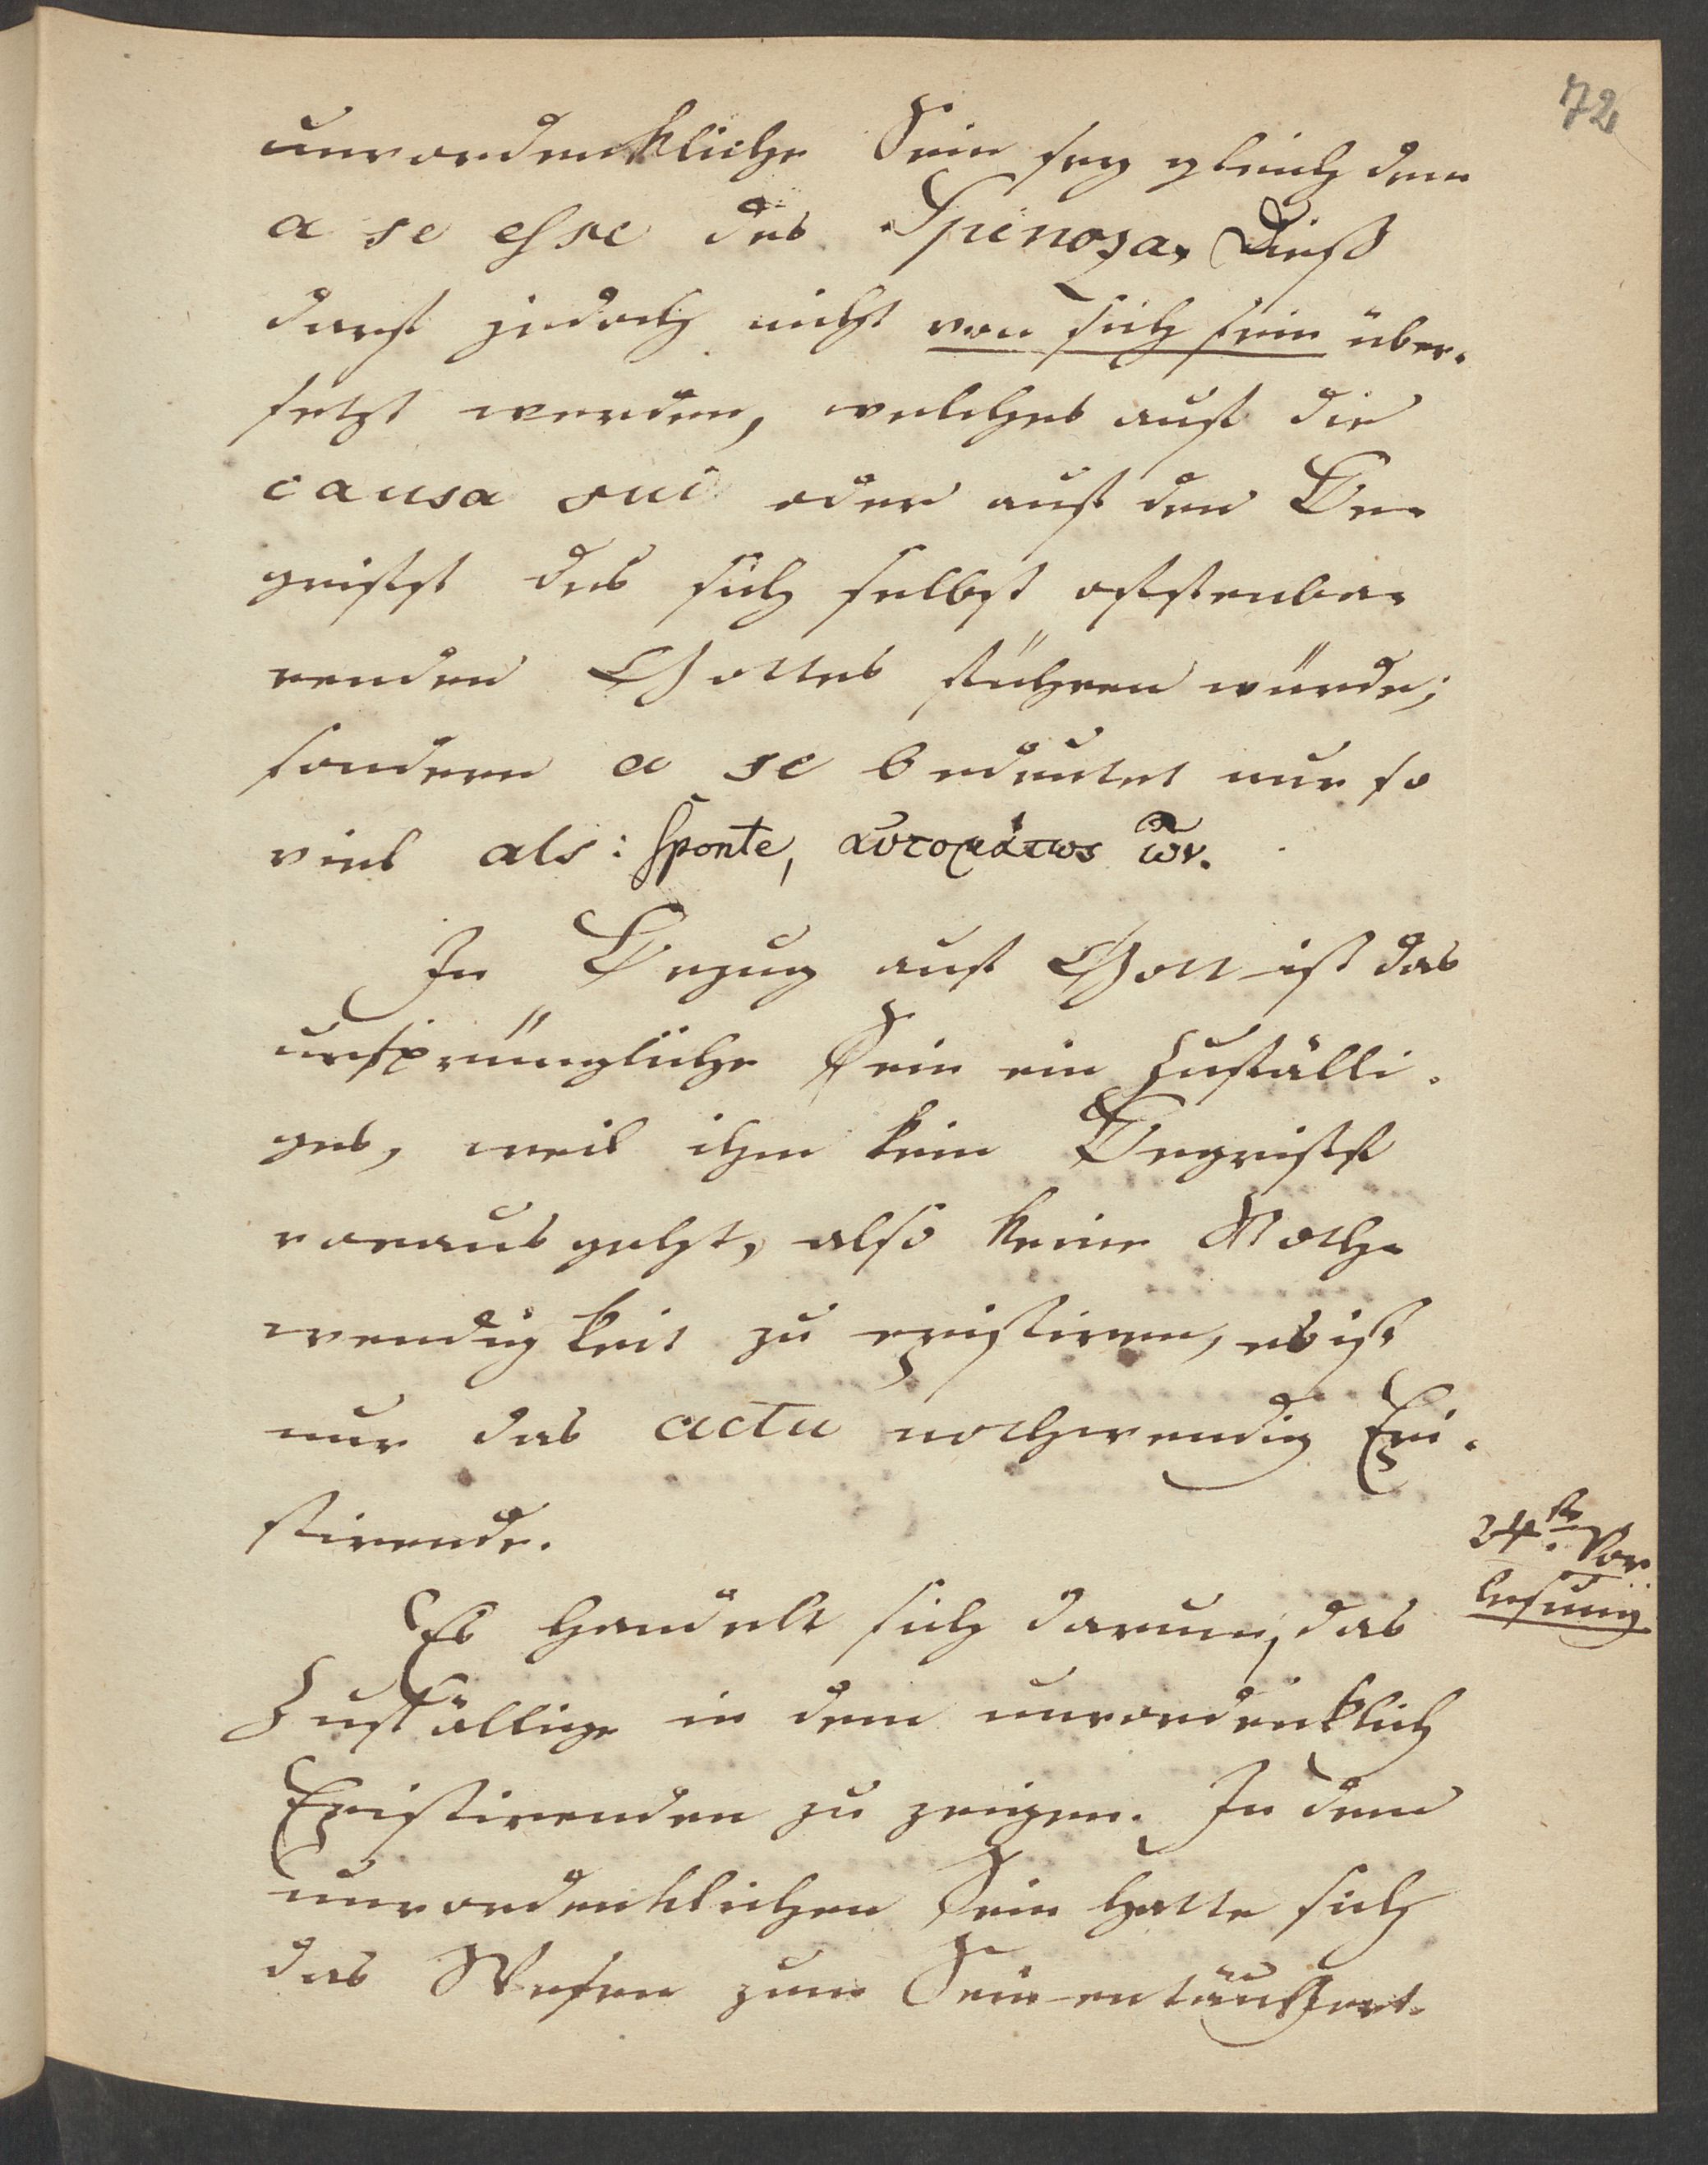 72
unvordenkliche Sein sey gleich dem
a se esse des Spinoza. Dieß
darf jedoch nicht von sich sein über-
setzt werden, welches auf die
causa sui oder auf den Be-
griff des sich selbst offenba-
renden Gottes führen würde;
sondern a se bedeutet nur so
viel als: sponte, αὐτομάτως ὤν.
In Bezug auf Gott ist das
ursprüngliche Sein ein Zufälli-
ges, weil ihm kein Begriff
vorausgeht, also keine Noth-
wendigkeit zu existiren, es ist
nur das actu nothwendig Exi-
stirende.
24te Vor-
lesung
Es handelt sich darum, das
Zufällige in dem unvordenklich
Existirenden zu zeigen. In dem
unvordenklichen Sein hatte sich
das Wesen zum Sein entäußert.